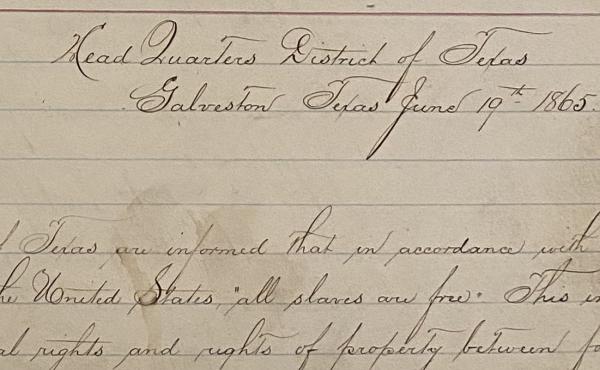 Head Quarters District of Texas
Galveston Texas June 19th 1865.
Texas are informed that in accordance with
United States, "all slaves are free". This
rights and rights of property between